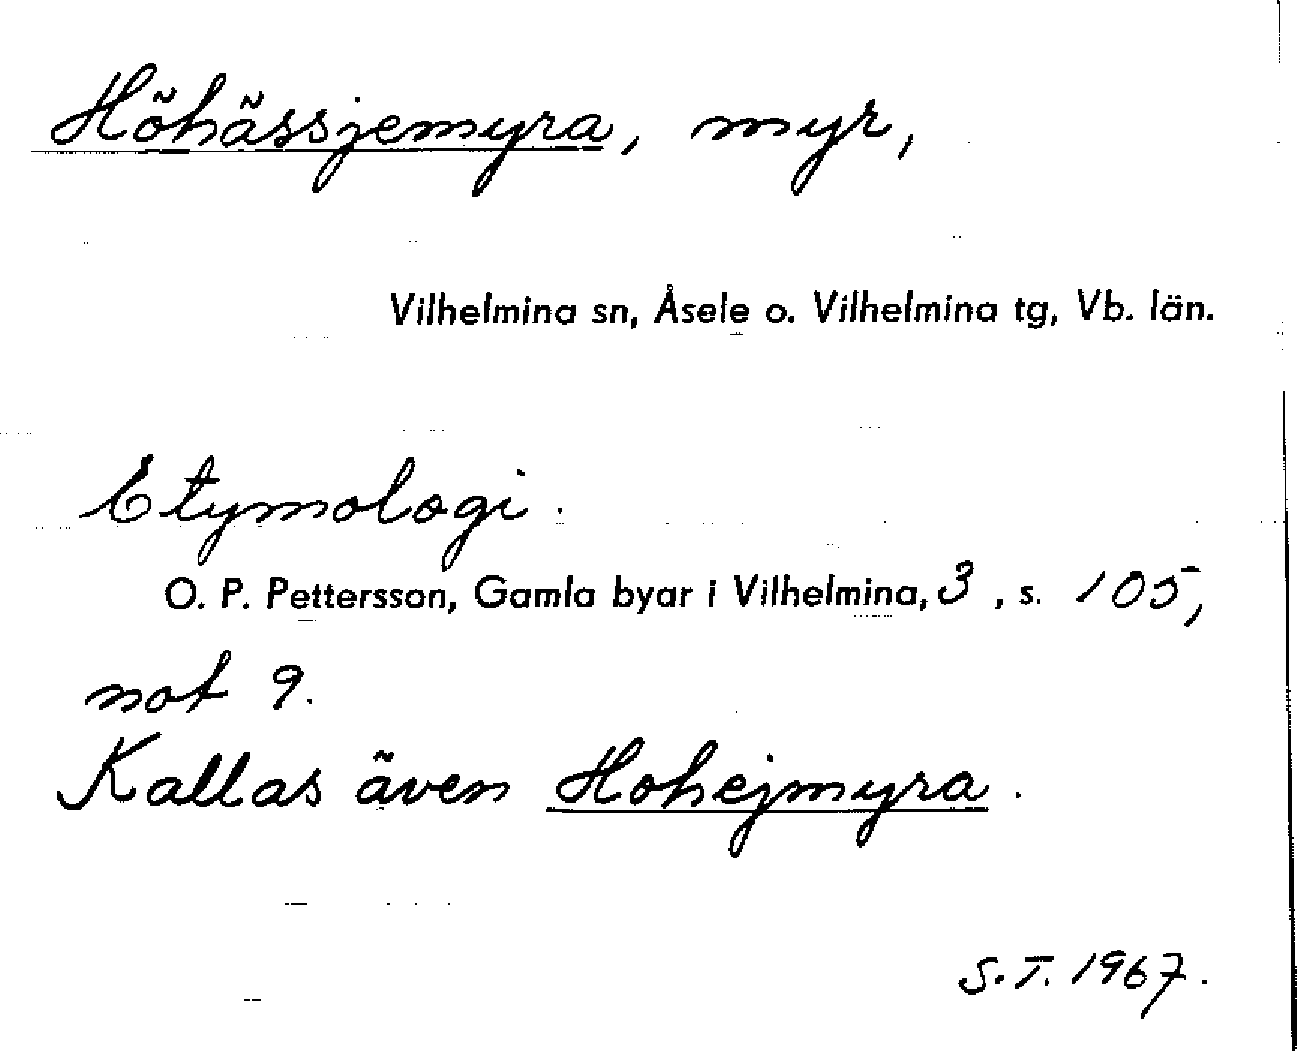 Höhässjemyra, myr,
Vilhelmina sn, Åsele o. Vilhelmina tg, Vb. län.
Etymologi.
O. P. Pettersson, Gamla byar i Vilhelmina, 3, s. 105,
not 9.
Kallas även Hohejmyra.
S.T. 1967.